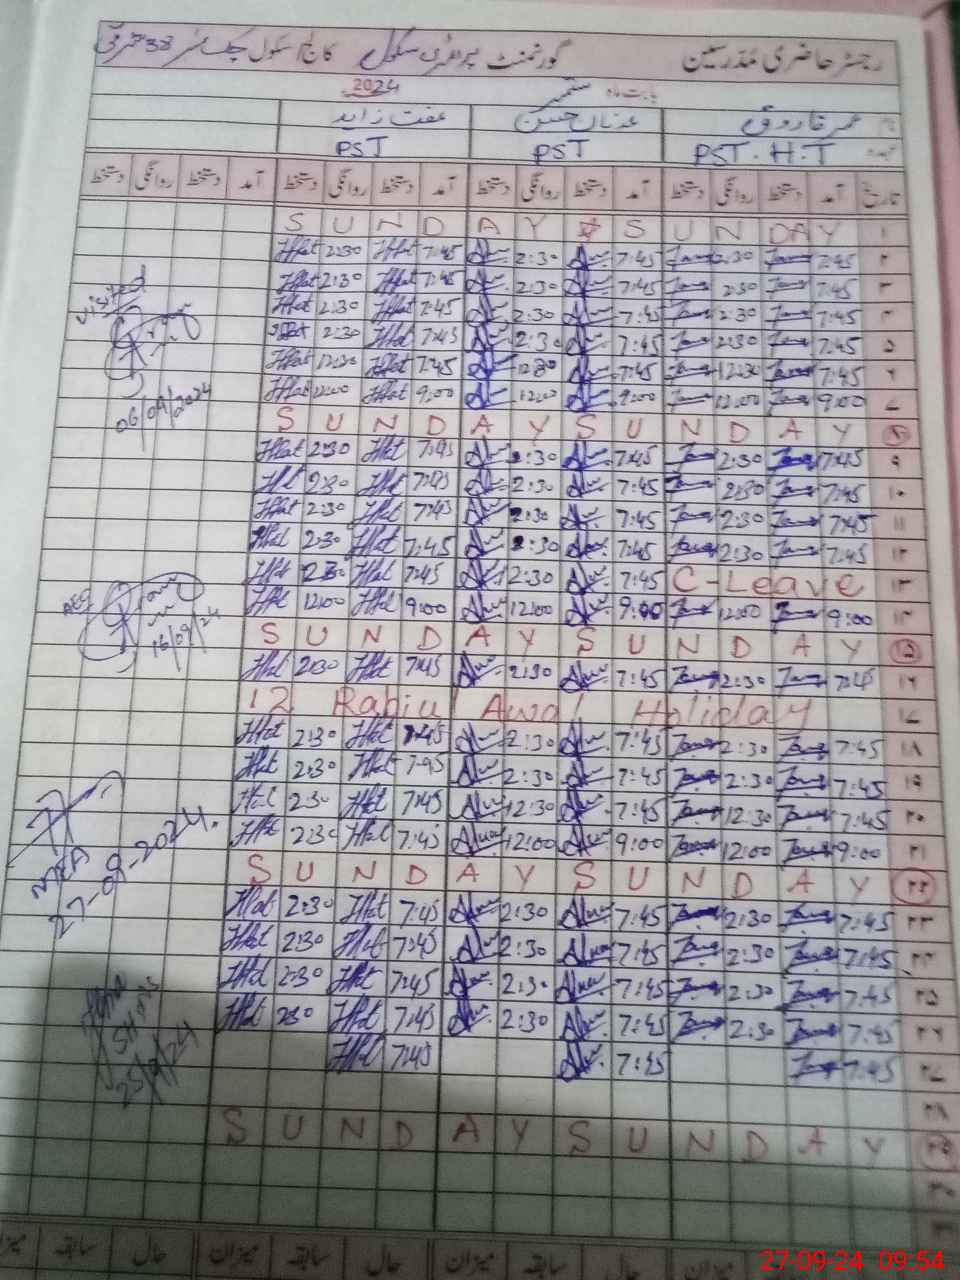 رجسٹر حاضری مدرسین گورنمنٹ پرائمری سکول کالج / سکول چک نمبر 38 شرقی
بابت ماہ ستمبر 2024
عمر فاروق عدنان حسن عفت زاہد
عہدہ PST.H.T PST PST
تاریخ آمد دستخط روانگی دستخط آمد دستخط روانگی دستخط آمد دستخط روانگی دستخط آمد دستخط روانگی دستخط
۱ S U N D A Y ☆ S U N DA Y
۲ 7:45 2:30 7:45 2:30 7:45 2:30
۳ 7:45 2:30 7:45 2:30 7:45 2:30
۴ 7:45 2:30 7:45 2:30 7:45 2:30
۵ 7:45 2:30 7:45 2:30 7:45 2:30
۶ 7:45 12:30 7:45 12:30 7:45 12:30
۷ 9:00 12:00 9:00 12:00 9:00 12:00
۸ S U N D A Y S U N D A Y
۹ 7:45 2:30 7:45 2:30 7:45 2:30
۱۰ 7:45 2:30 7:45 2:30 7:45 2:30
۱۱ 7:45 2:30 7:45 2:30 7:45 2:30
۱۲ 7:45 2:30 7:45 2:30 7:45 2:30
۱۳ C-Leave 7:45 2:30 7:45 2:30
۱۴ 9:00 12:00 9:00 12:00 9:00 12:00
۱۵ S U N D A Y S U N D A Y
۱۶ 7:45 2:30 7:45 2:30 7:45 2:30
۱۷ 12 Rabiul Awal Holiday
۱۸ 7:45 2:30 7:45 2:30 7:45 2:30
۱۹ 7:45 2:30 7:45 2:30 7:45 2:30
۲۰ 7:45 12:30 7:45 12:30 7:45 2:30
۲۱ 9:00 12:00 9:00 12:00 7:45 2:30
۲۲ S U N D A Y S U N D A Y
۲۳ 7:45 2:30 7:45 2:30 7:45 2:30
۲۴ 7:45 2:30 7:45 2:30 7:45 2:30
۲۵ 7:45 2:30 7:45 2:30 7:45 2:30
۲۶ 7:45 2:30 7:45 2:30 7:45 2:30
۲۷ 7:45 7:45 7:45
۲۸
۲۹ S U N D A Y S U N D A Y
۳۰
میزان حال سابقہ میزان حال سابقہ میزان حال سابقہ میزان
visited
06/09/2024
AEO
16/09/24
MEA
27-09-2024.
25/9/24
27-09-24 09:54